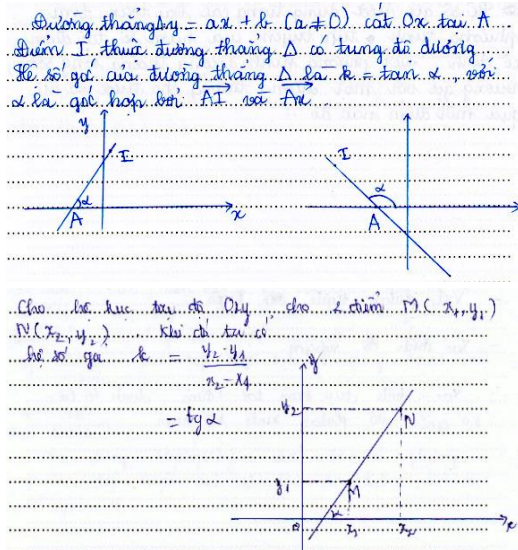 Đường thẳng Δy = ax + b (a ≠ 0) cắt Ox tại A
Điểm I thuộc đường thẳng Δ có tung độ dương
Hệ số góc của đường thẳng Δ là k = tan α, với
α là góc hợp bởi AI và Ax
y
I
α
A
x
I
α
A
Cho hệ trục tọa độ Oxy, cho 2 điểm M(x₁, y₁)
N(x₂, y₂). Khi đó ta có
hệ số góc k = (y₂ - y₁)/(x₂ - x₁)
= tg α
y
y₂
N
y₁
M
α
O
x₁
x₂
x